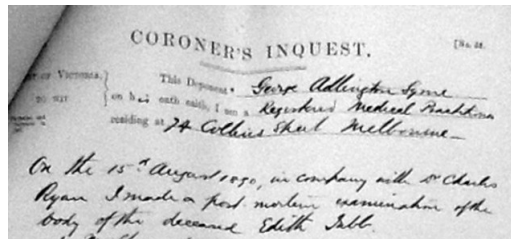 CORONER'S INQUEST.
[No. 28.
OF VICTORIA, This Deponent George Adlington Syme
TO WIT on his oath saith, I am a Registered Medical Practitioner
residing at 74 Collins Street Melbourne
On the 15th August 1890, in company with Dr Charles
Ryan I made a post mortem examination of the
body of the deceased Edith Jubb.